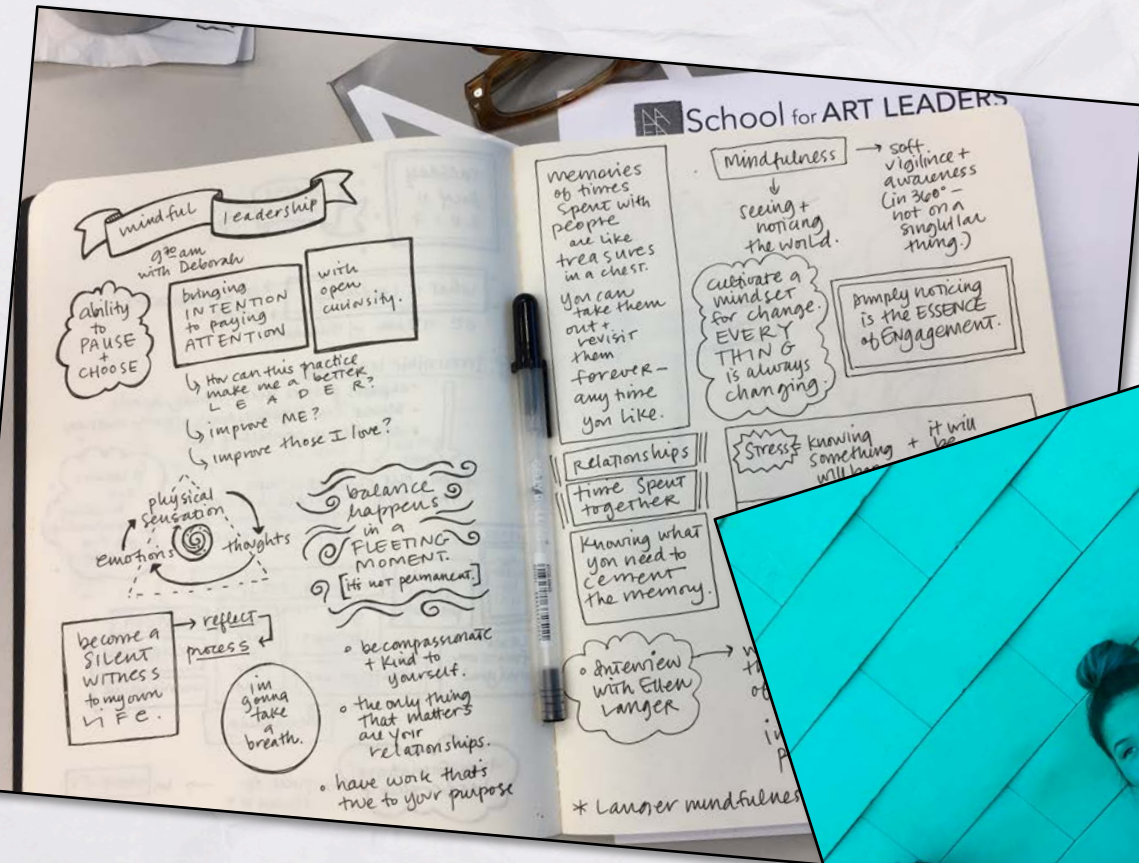 School for ART LEADERS
mindful leadership
9³⁰ am
with Deborah
ability
to
PAUSE
+
CHOOSE
bringing
INTENTION
to paying
ATTENTION
with
open
curiosity.
How can this practice
make me a better
LEADER?
improve ME?
improve those I love?
physical
sensation
emotions
thoughts
balance
happens
in a
FLEETING
MOMENT.
[it's not permanent.]
become a
SILENT
WITNESS
to my own
LIFE.
reflect
process
im
gonna
take
a
breath.
• be compassionate
+ kind to
yourself.
• the only thing
that matters
are your
relationships.
• have work that's
true to your purpose
memories
of times
spent with
people
are like
treasures
in a chest.
you can
take them
out +
revisit
them
forever—
any time
you like.
Relationships
time spent
together
Knowing what
you need to
cement
the memory.
• Interview
with Ellen
Langer
mindfulness
seeing +
noticing
the world.
soft
vigilince +
awareness
(in 360° —
not on a
singlular
thing.)
cultivate a
mindset
for change.
EVERY
THING
is always
changing.
simply noticing
is the ESSENCE
of Engagement.
Stress = Knowing
something
will
+ it will
be
* Langer